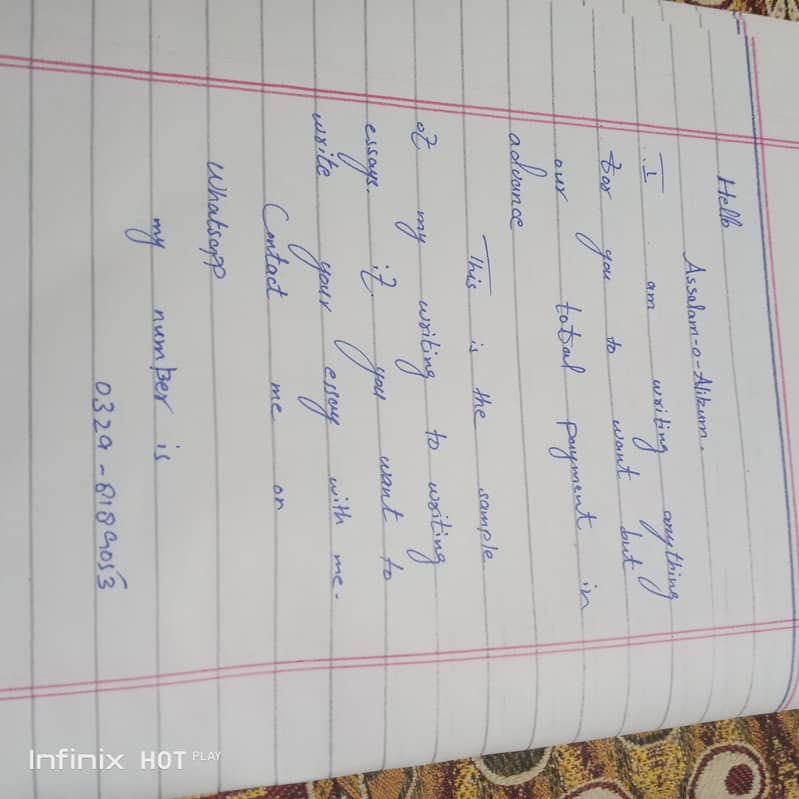 Hello
Assalam-o-Alikum.
I am writing anything
for you to want but
our total payment in
advance
This is the sample
of my writing to writing
essays. if you want to
write your essay with me.
Contact me on
Whatsapp
my number is
0329-8189053
Infinix HOT PLAY